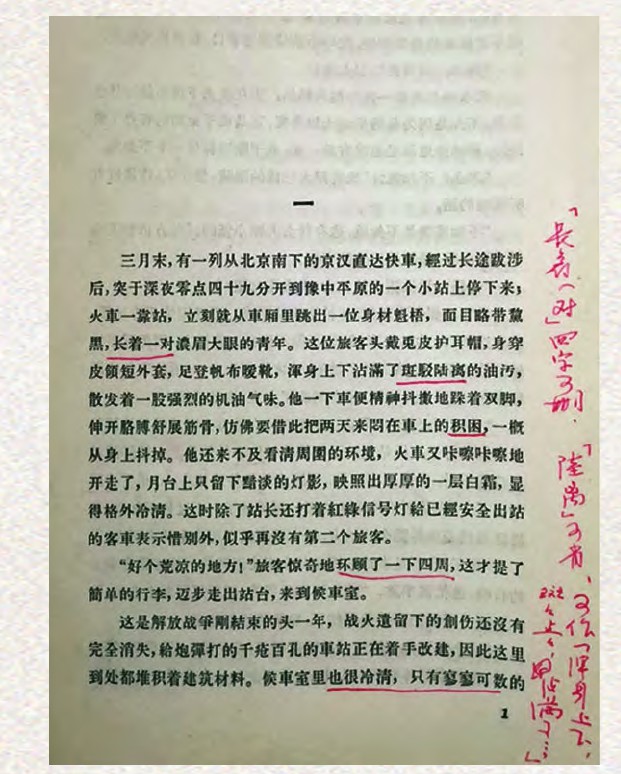 一
三月末,有一列从北京南下的京汉直达快車,經过长途跋涉
后,突于深夜零点四十九分开到豫中平原的一个小站上停下来;
火車一靠站,立刻就从車厢里跳出一位身材魁梧,面目略带黧
黑,长着一对濃眉大眼的青年。这位旅客头戴兎皮护耳帽,身穿
皮領短外套,足登帆布暖靴,渾身上下沾滿了斑駁陆离的油污,
散发着一股强烈的机油气味。他一下車便精神抖擻地跺着双脚,
伸开胳膊舒展筋骨,仿佛要借此把两天来悶在車上的积困,一概
从身上抖掉。他还来不及看清周圍的环境,火車又咔嚓咔嚓地
开走了,月台上只留下黯淡的灯影,映照出厚厚的一层白霜,显
得格外冷清。这时除了站长还打着紅綠信号灯給已經安全出站
的客車表示惜别外,似乎再沒有第二个旅客。
“好个荒凉的地方!”旅客惊奇地环顾了一下四周,这才提了
簡单的行李,迈步走出站台,来到候車室。
这是解放战爭剛結束的头一年,战火遺留下的創伤还沒有
完全消失,給炮彈打的千疮百孔的車站正在着手改建,因此这里
到处都堆积着建筑材料。候車室里也很冷清,只有寥寥可数的
1
「長着一对」四字可删、
「陸离」可省、可作「渾身上下,
斑々点々,沾满了…」